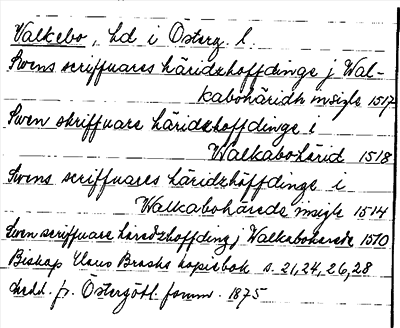 Valkebo, hd i Österg. l.
Swens scriffuares häridzhoffdinge j Wal-
kabohäridh insigle 1517
Swen skriffuare häridzhoffdinge i
Walkabohärid 1518
Swens scriffuares häridzhöffdinge i
Walkabohäreds insigle 1514
Swen scriffuare häredzhoffding j Walkabohärede 1510
Biskop Claus Brasks kopiebok s. 21, 24, 26, 28
Medd. fr. Östergötl. fornm. 1875